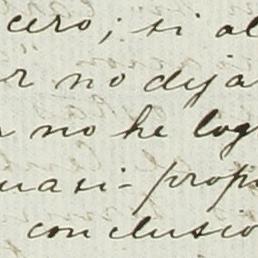 cero; si al
r no deja
no he log
uasi-prop
conclusio